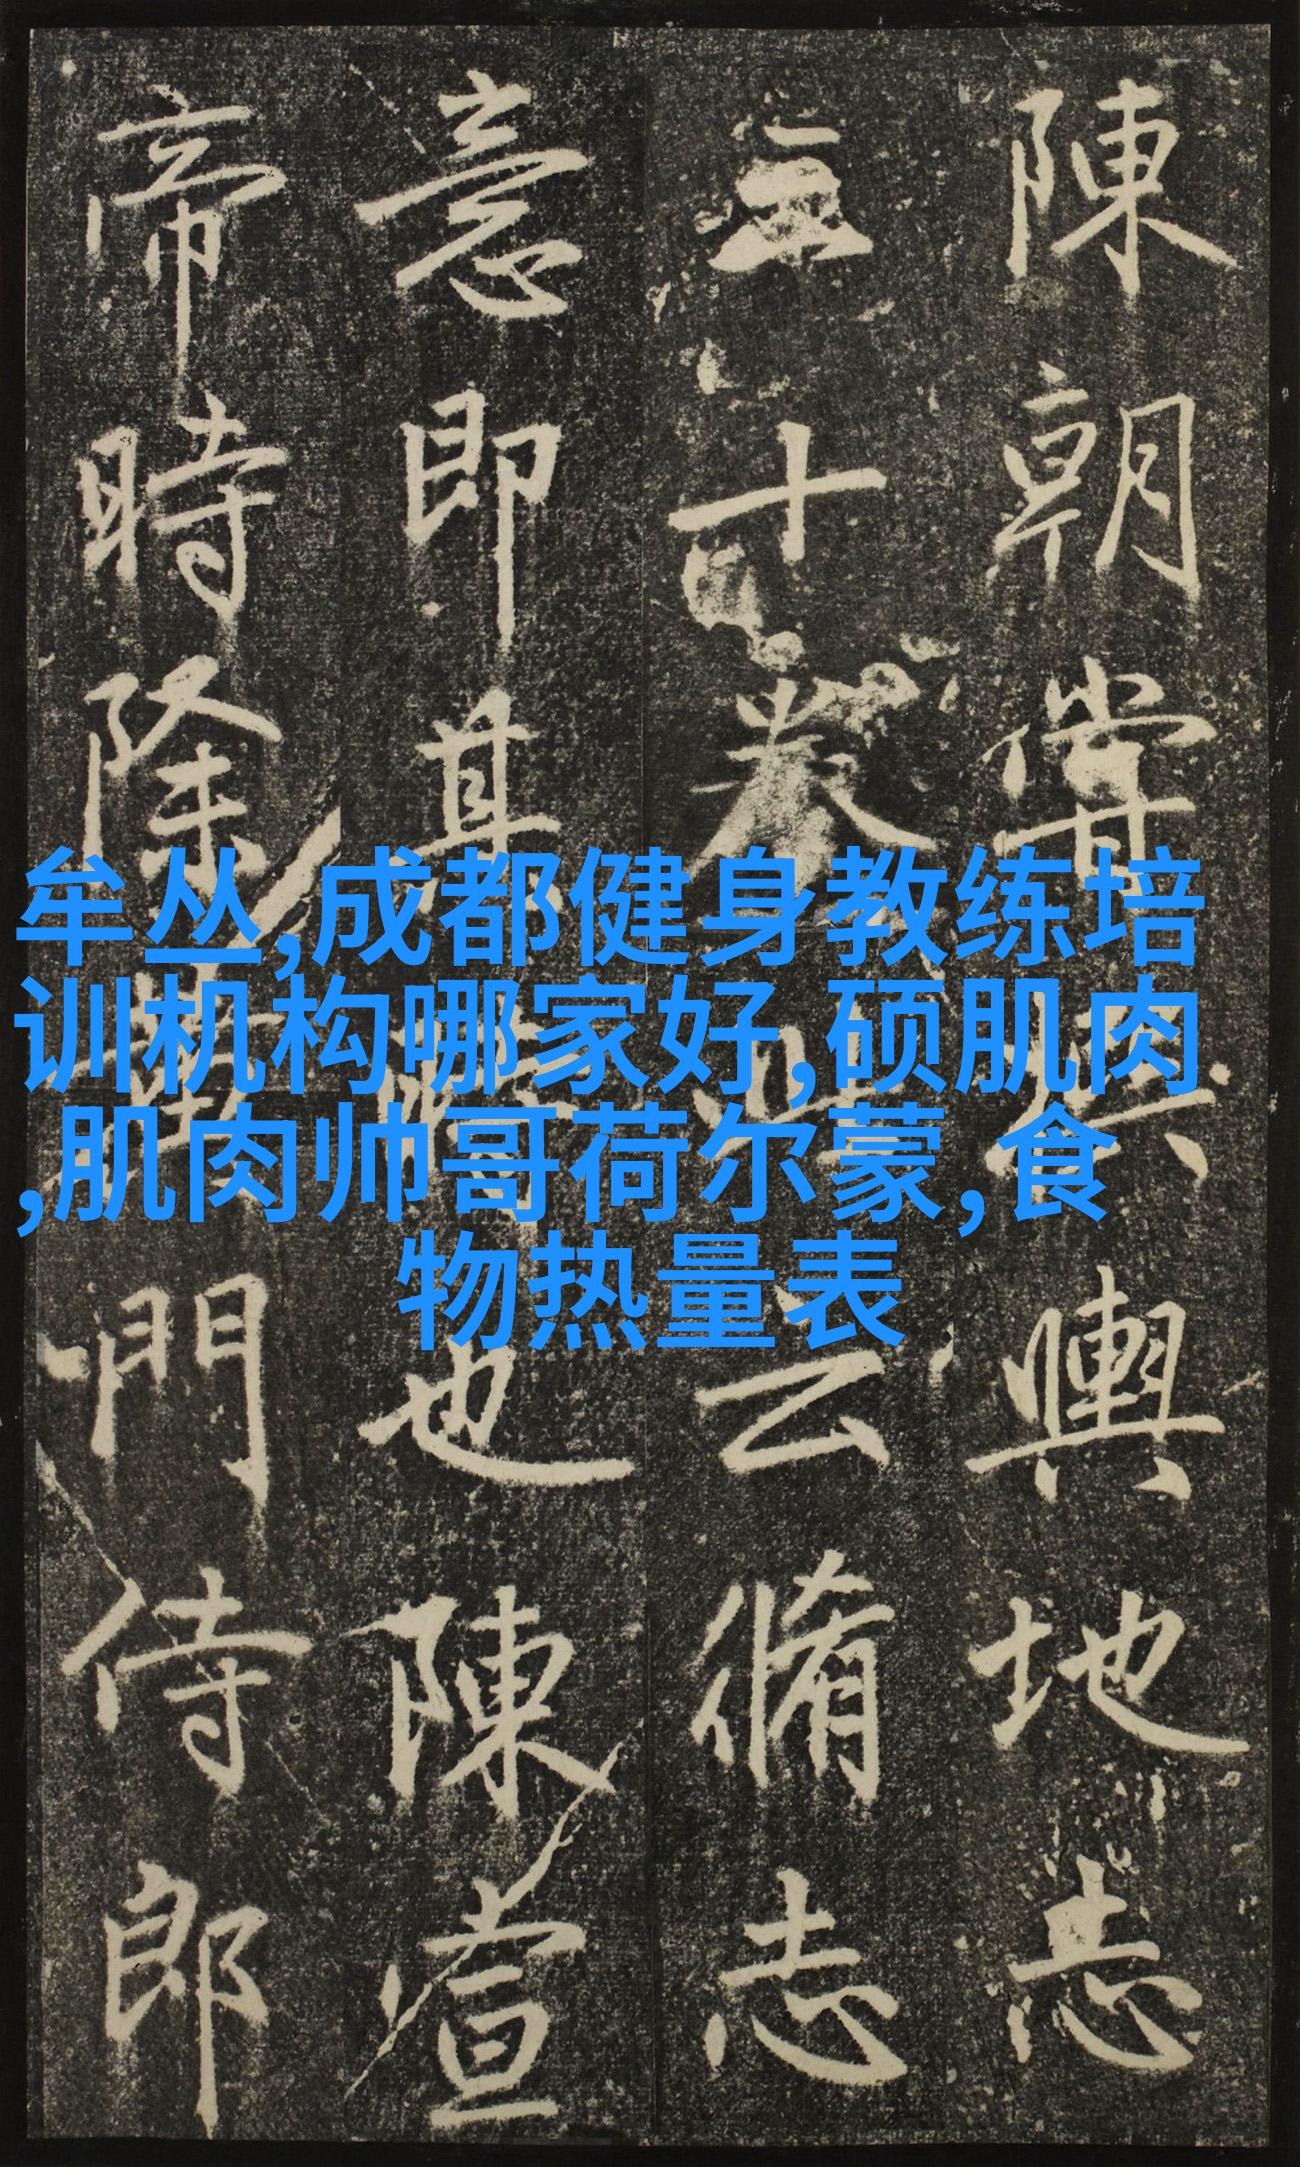 陳朝嘗撰輿地志
三十卷此云脩志
意即其時也陳宣
帝時除黃門侍郎
牟丛,成都健身教练培
训机构哪家好,硕肌肉
,肌肉帅哥荷尔蒙,食
物热量表